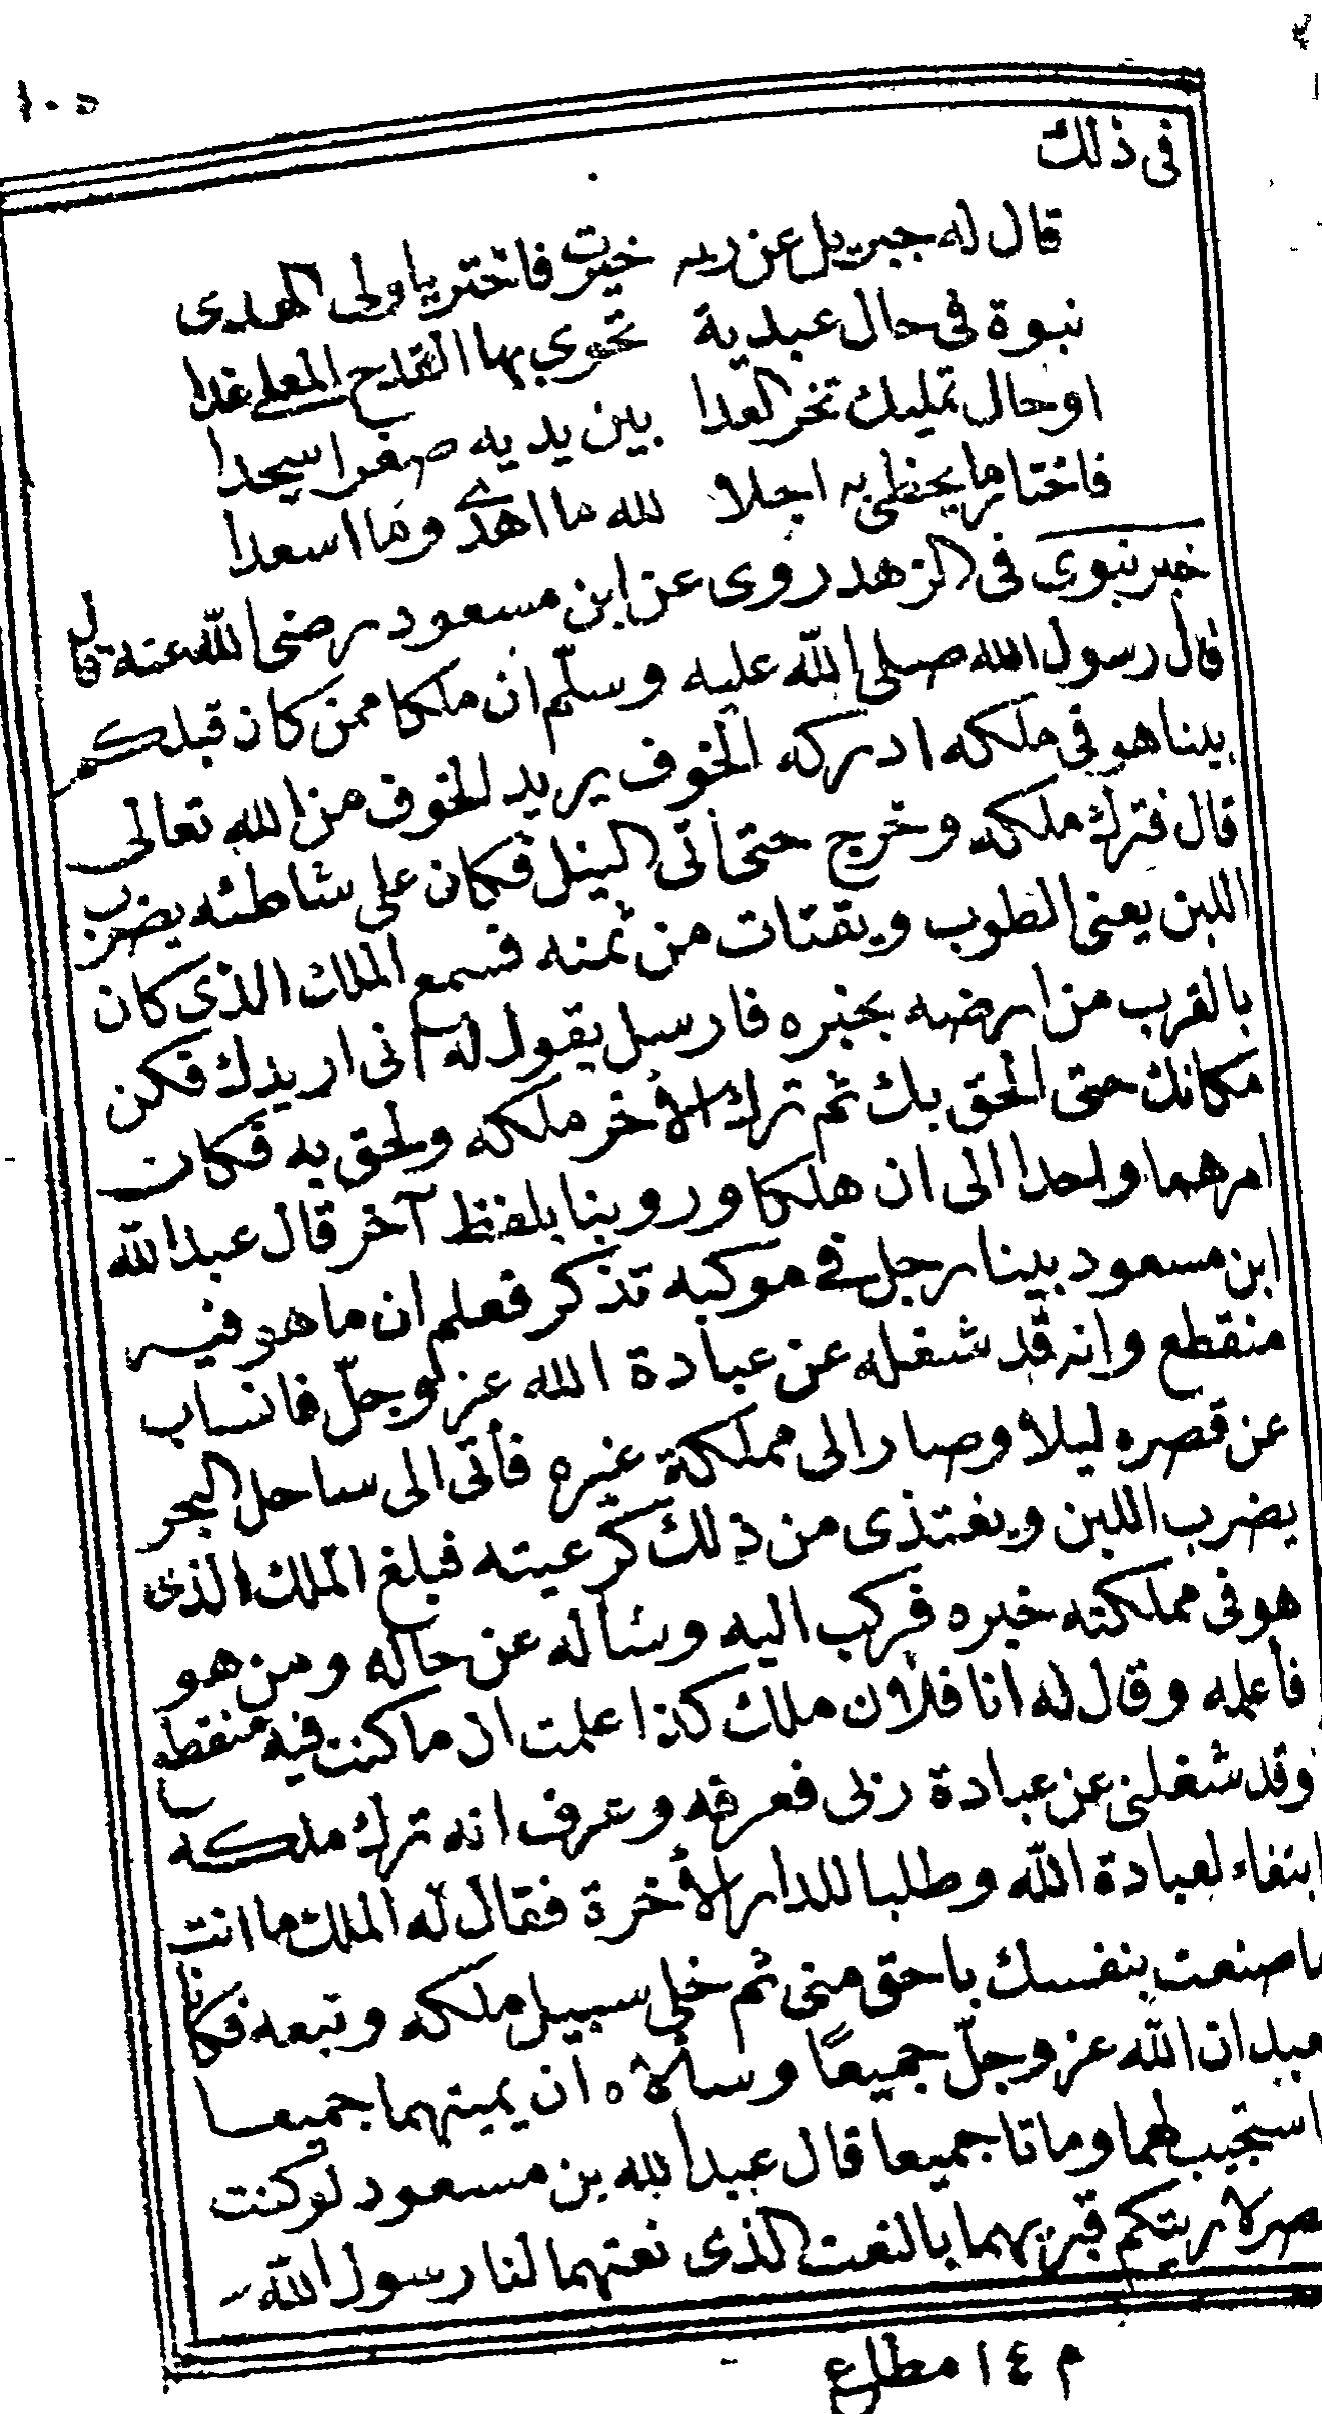 ١٠٥
فى ذلك
قال له جبريل عن ربه خيرت فاختر ياولى الهدى
نبوة فى حال عبدية تحوى بها القدح المعلى غدا
اوحال تمليك تخر العدا بين يديه صغرا سجدا
فاختار ما يحظى به اجلا لله ما اهدى وما اسعدا
خبر نبوى فى الزهد روى عن ابن مسعود رضى الله عنه قال
قال رسول الله صلى الله عليه وسلم ان ملكا ممن كان قبلكم
بيناهو فى ملكه ادركه الخوف يريد الخوف من الله تعالى
قال فترك ملكه وخرج حتى أتى النيل فكان على شاطئه يضرب
اللبن يعنى الطوب ويقتات من ثمنه فسمع الملك الذى كان
بالقرب من ارضه بخبره فارسل يقول له انى اريدك فكن
مكانك حتى الحق بك ثم ترك الأخر ملكه ولحق به فكان
امرهما واحدا الى ان هلكا وروينا بلفظ آخر قال عبدالله
ابن مسعود بينا رجل فى موكبه تذكر فعلم ان ما هو فيه
منقطع وانه قد شغله عن عبادة الله عز وجل فانساب
عن قصره ليلا وصار الى مملكة غيره فأتى الى ساحل البحر
يضرب اللبن ويغتذى من ذلك كرعيته فبلغ الملك الذى
هو فى مملكته خبره فركب اليه وسأله عن حاله ومن هو
فأعلمه وقال له انا فلان ملك كذا علمت ان ما كنت فيه منقطع
وقد شغلنى عن عبادة ربى فعرفه وعرف انه ترك ملكه
ابتغاء لعبادة الله وطلبا للدار الأخرة فقال له الملك ما انت
ما صنعت بنفسك باحق منى ثم خلى سبيل ملكه وتبعه فكانا
يعبدان الله عز وجل جميعًا وسألاه ان يميتهما جميعا
استجيب لهما وماتا جميعا قال عبدالله بن مسعود لوكنت
بمصر لاريتكم قبريهما بالنعت الذى نعتهما لنا رسول الله
م ١٤ مطالع